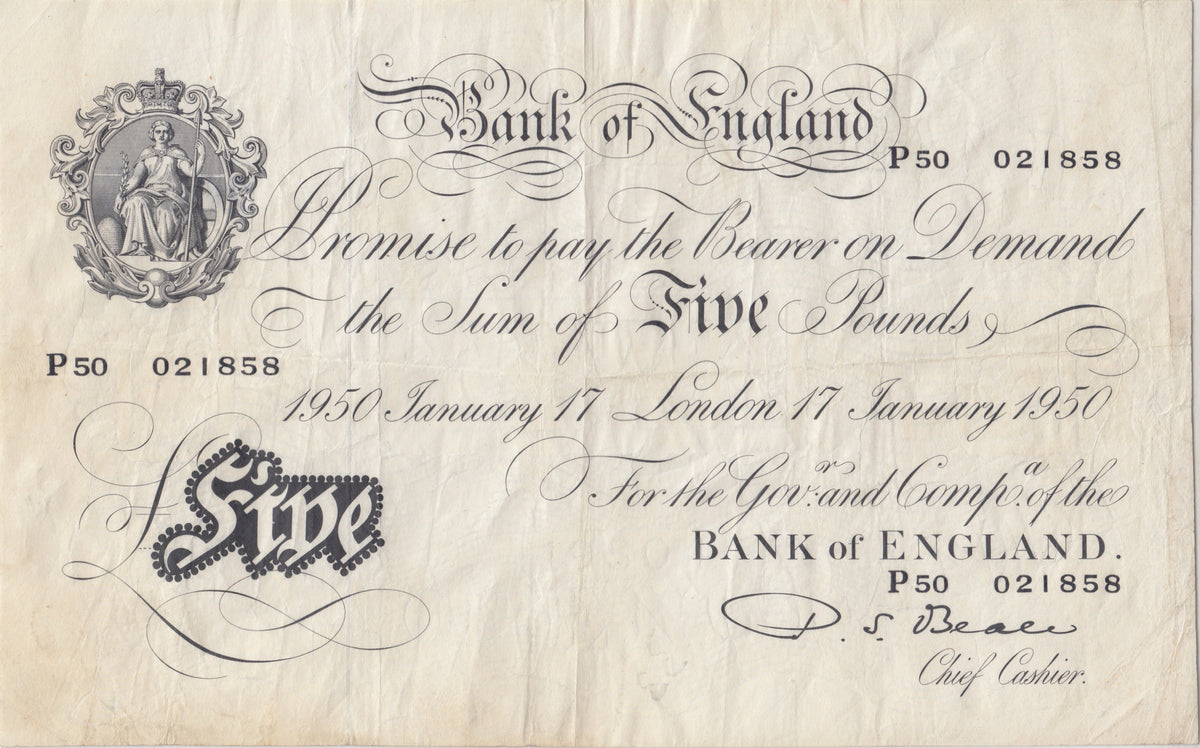 Bank of England
P50 021858
I Promise to pay the Bearer on Demand
the Sum of Five Pounds
P50 021858
1950 January 17 London 17 January 1950
For the Govr. and Compa. of the
BANK of ENGLAND.
£Five
P50 021858
P. S. Beale
Chief Cashier.